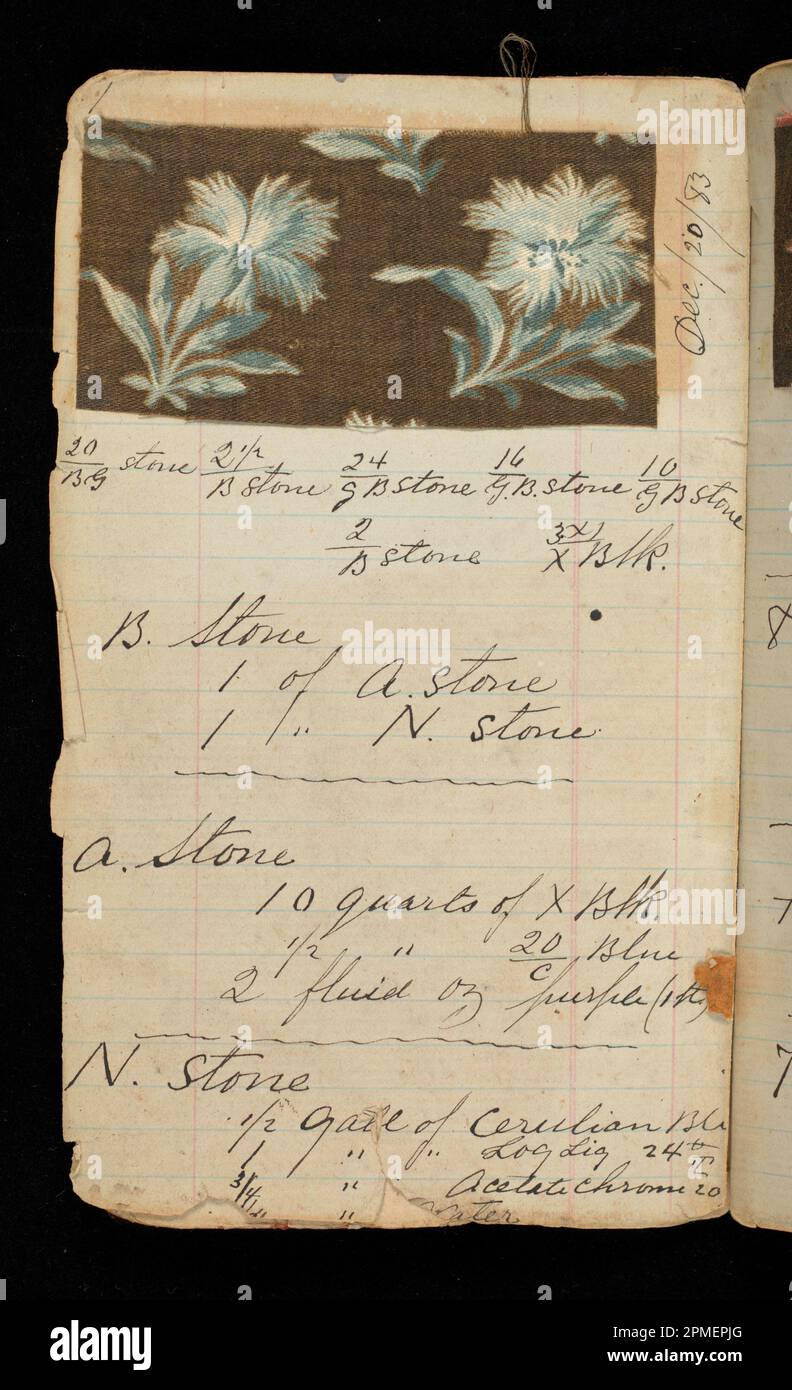 1
Dec./20/83
20/BG stone 2 1/2/B stone 24/G B stone 16/G.B. stone 10/G B stone
2/B stone 3x/X Blk.
B. Stone
1 of A. stone
1 " N. stone
A. Stone
10 quarts of X Blk.
1/2 " 20/C Blue
2 fluid oz purple
N. Stone
1/2 Gall of Cerulian Blu
1 " " Log Liq 24
3/4 " Acetate chrome 20
" " Water
alamy
Image ID: 2PMEPJG
www.alamy.com